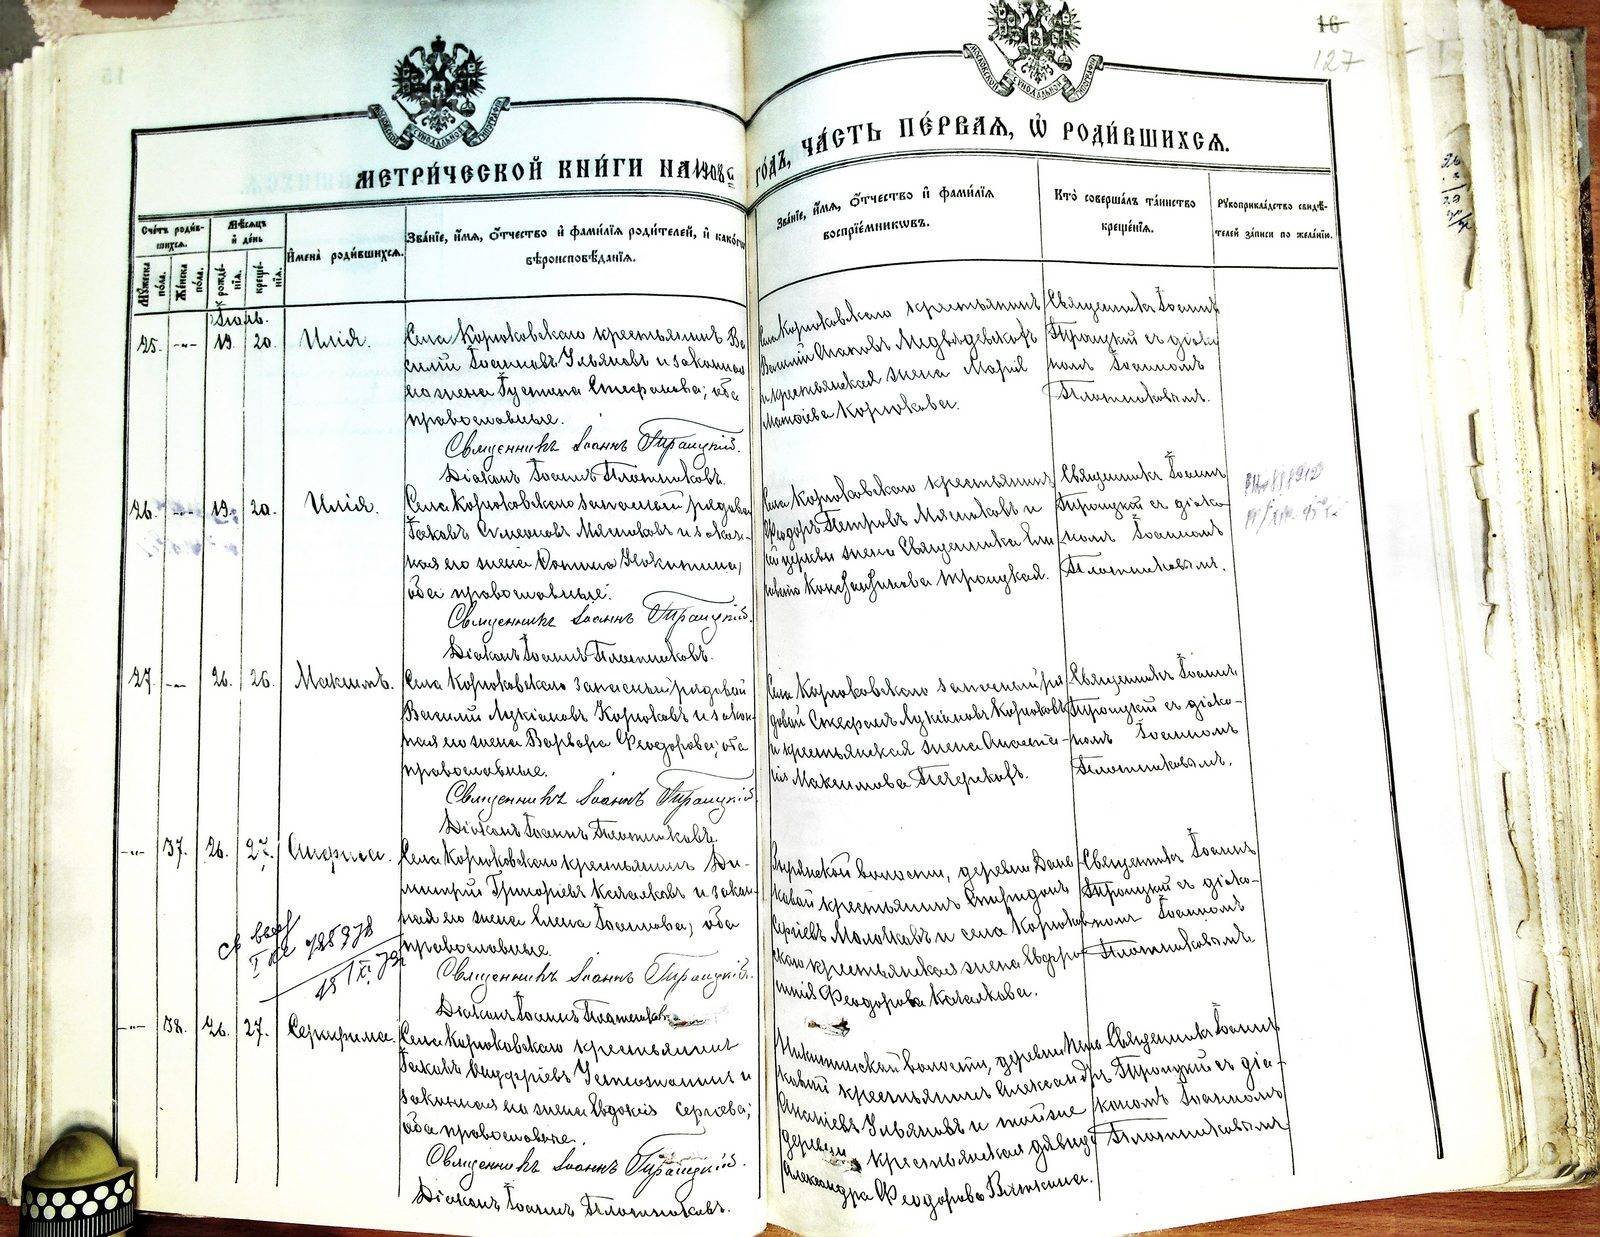 16
127
МОСКОВСКОЙ СѴНОДАЛЬНОЙ ТИПОГРАФІИ
МОСКОВСКОЙ СѴНОДАЛЬНОЙ ТИПОГРАФІИ
МЕТРИ́ЧЕСКОЙ КНИ́ГИ НА 1908й
ГО́ДЪ, ЧА́СТЬ ПЕ́РВАѦ, Ѡ҆ РОДИ́ВШИХСѦ.
Сче́тъ роди́вшихсѧ.
Мꙋ́жеска по́ла.
Же́нска по́ла.
Мѣ́сѧцъ и҆ де́нь
рожде́нїѧ.
креще́нїѧ.
И҆мена̀ роди́вшихсѧ.
Зва́нїе, и҆́мѧ, ѻ҆́тчество и҆ фами́лїѧ роди́телей, и҆ како́гѡ вѣроисповѣ́данїѧ.
Зва́нїе, и҆́мѧ, ѻ҆́тчество и҆ фами́лїѧ воспрїе́мникѡвъ.
Кто̀ соверша́лъ та́инство креще́нїѧ.
Рꙋкоприкла́дство свидѣ́телей за́писи по жела́нїю.
Іюль.
25. -"- 19. 20. Илія.
Села Корюковскаго крестьянинъ Ва-
силій Іоанновъ Ульяновъ и законная
его жена Іустина Стефанова; оба
православные.
Священникъ Іоаннъ Троицкій.
Діаконъ Іоаннъ Плотниковъ.
Села Корюковскаго крестьянинъ
Василій Медвѣдевскихъ
и крестьянская жена Марія
Матѳіева Корюкова.
Священникъ Іоаннъ
Троицкій съ діако-
номъ Іоанномъ
Плотниковымъ.
26. -"- 19. 20. Илія.
Села Корюковскаго запасный рядовой
Іаковъ Симеоновъ Мясниковъ и закон-
ная его жена Никитина,
оба православные.
Священникъ Іоаннъ Троицкій.
Діаконъ Іоаннъ Плотниковъ.
Села Корюковскаго крестьянинъ
Ѳеодоръ Петровъ Мясниковъ и
той церкви жена Священника Ели-
савета Константинова Троицкая.
Священникъ Іоаннъ
Троицкій съ діако-
номъ Іоанномъ
Плотниковымъ.
27. -"- 26. 26. Максимъ.
Села Корюковскаго запасный рядовой
Василій Лукіановъ Корюковъ и закон-
ная его жена Варвара Ѳеодорова; оба
православные.
Священникъ Іоаннъ Троицкій
Діаконъ Іоаннъ Плотниковъ.
Села Корюковскаго запасный ря-
довой Стефанъ Лукіановъ Корюковъ
и крестьянская жена Анаста-
сія Максимова
Священникъ Іоаннъ
Троицкій съ діако-
номъ Іоанномъ
Плотниковымъ.
-"- 37. 26. 27. Анфиса.
Села Корюковскаго крестьянинъ Ди-
митрій Григоріевъ Качалковъ и закон-
ная его жена Елена Іоаннова, оба
православные.
Священникъ Іоаннъ Троицкій.
Діаконъ Іоаннъ Плотниковъ
волости, деревни
крестьянинъ Спиридонъ
Сергіевъ Молочковъ и села Корюков-
скаго крестьянская жена Евфро-
синія Ѳеодорова Качалкова.
Священникъ Іоаннъ
Троицкій съ діако-
номъ Іоанномъ
Плотниковымъ
-"- 38. 26. 27. Серафима.
Села Корюковскаго крестьянинъ
Іаковъ Онуфріевъ и
законная его жена Евдокія Сергіева;
оба православные.
Священникъ Іоаннъ Троицкій.
Діаконъ Іоаннъ Плотниковъ.
Никитинской волости, деревни
крестьянинъ Александръ
Ананіевъ Ульяновъ и той же
деревни крестьянская дѣвица
Александра Ѳеодорова Вяткина.
Священникъ Іоаннъ
Троицкій съ діа-
кономъ Іоанномъ
Плотниковымъ